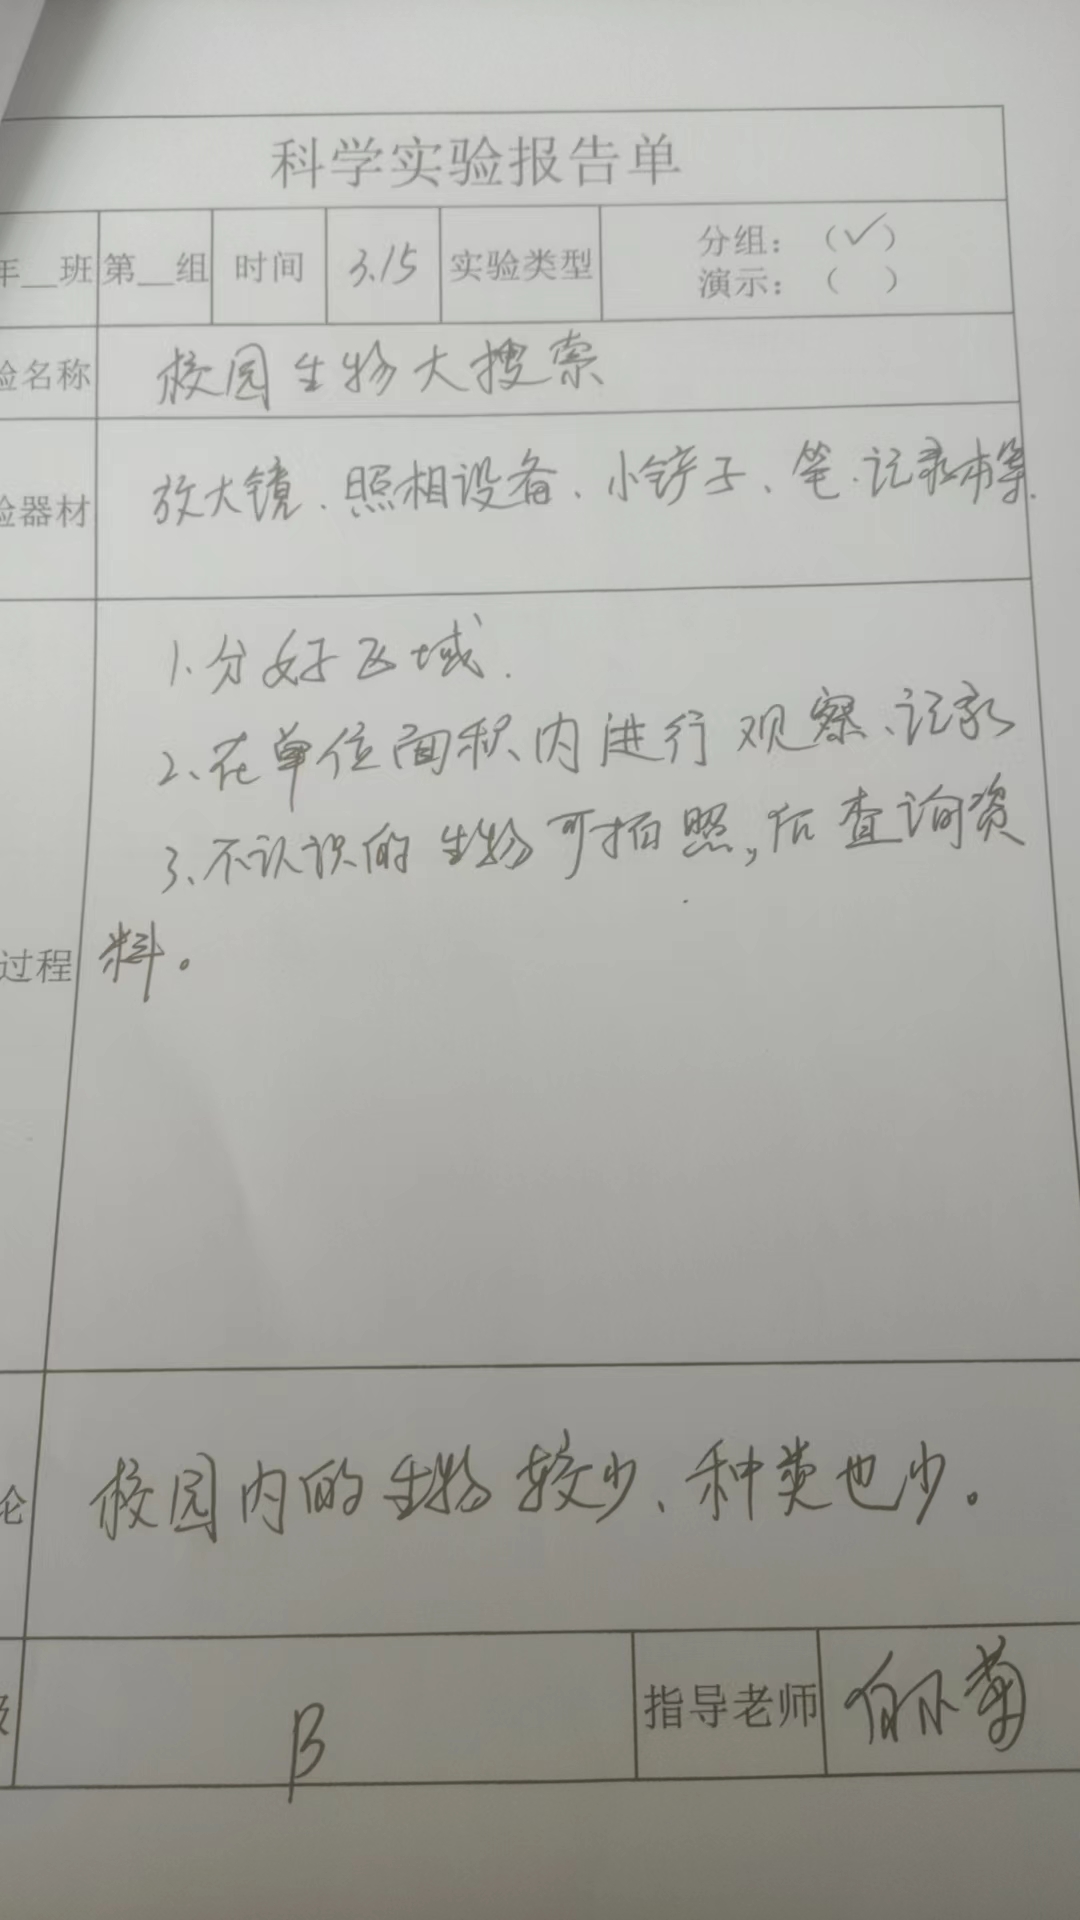 科学实验报告单
年__班 第__组 时间 3.15 实验类型 分组：（✓）
演示：（ ）
验名称 校园生物大搜索
验器材 放大镜、照相设备、小铲子、笔、记录本等.
1、分好区域.
2、在单位面积内进行观察、记录
3、不认识的生物可拍照，后查询资
过程 料。
论 校园内的生物较少、种类也少。
级 B 指导老师